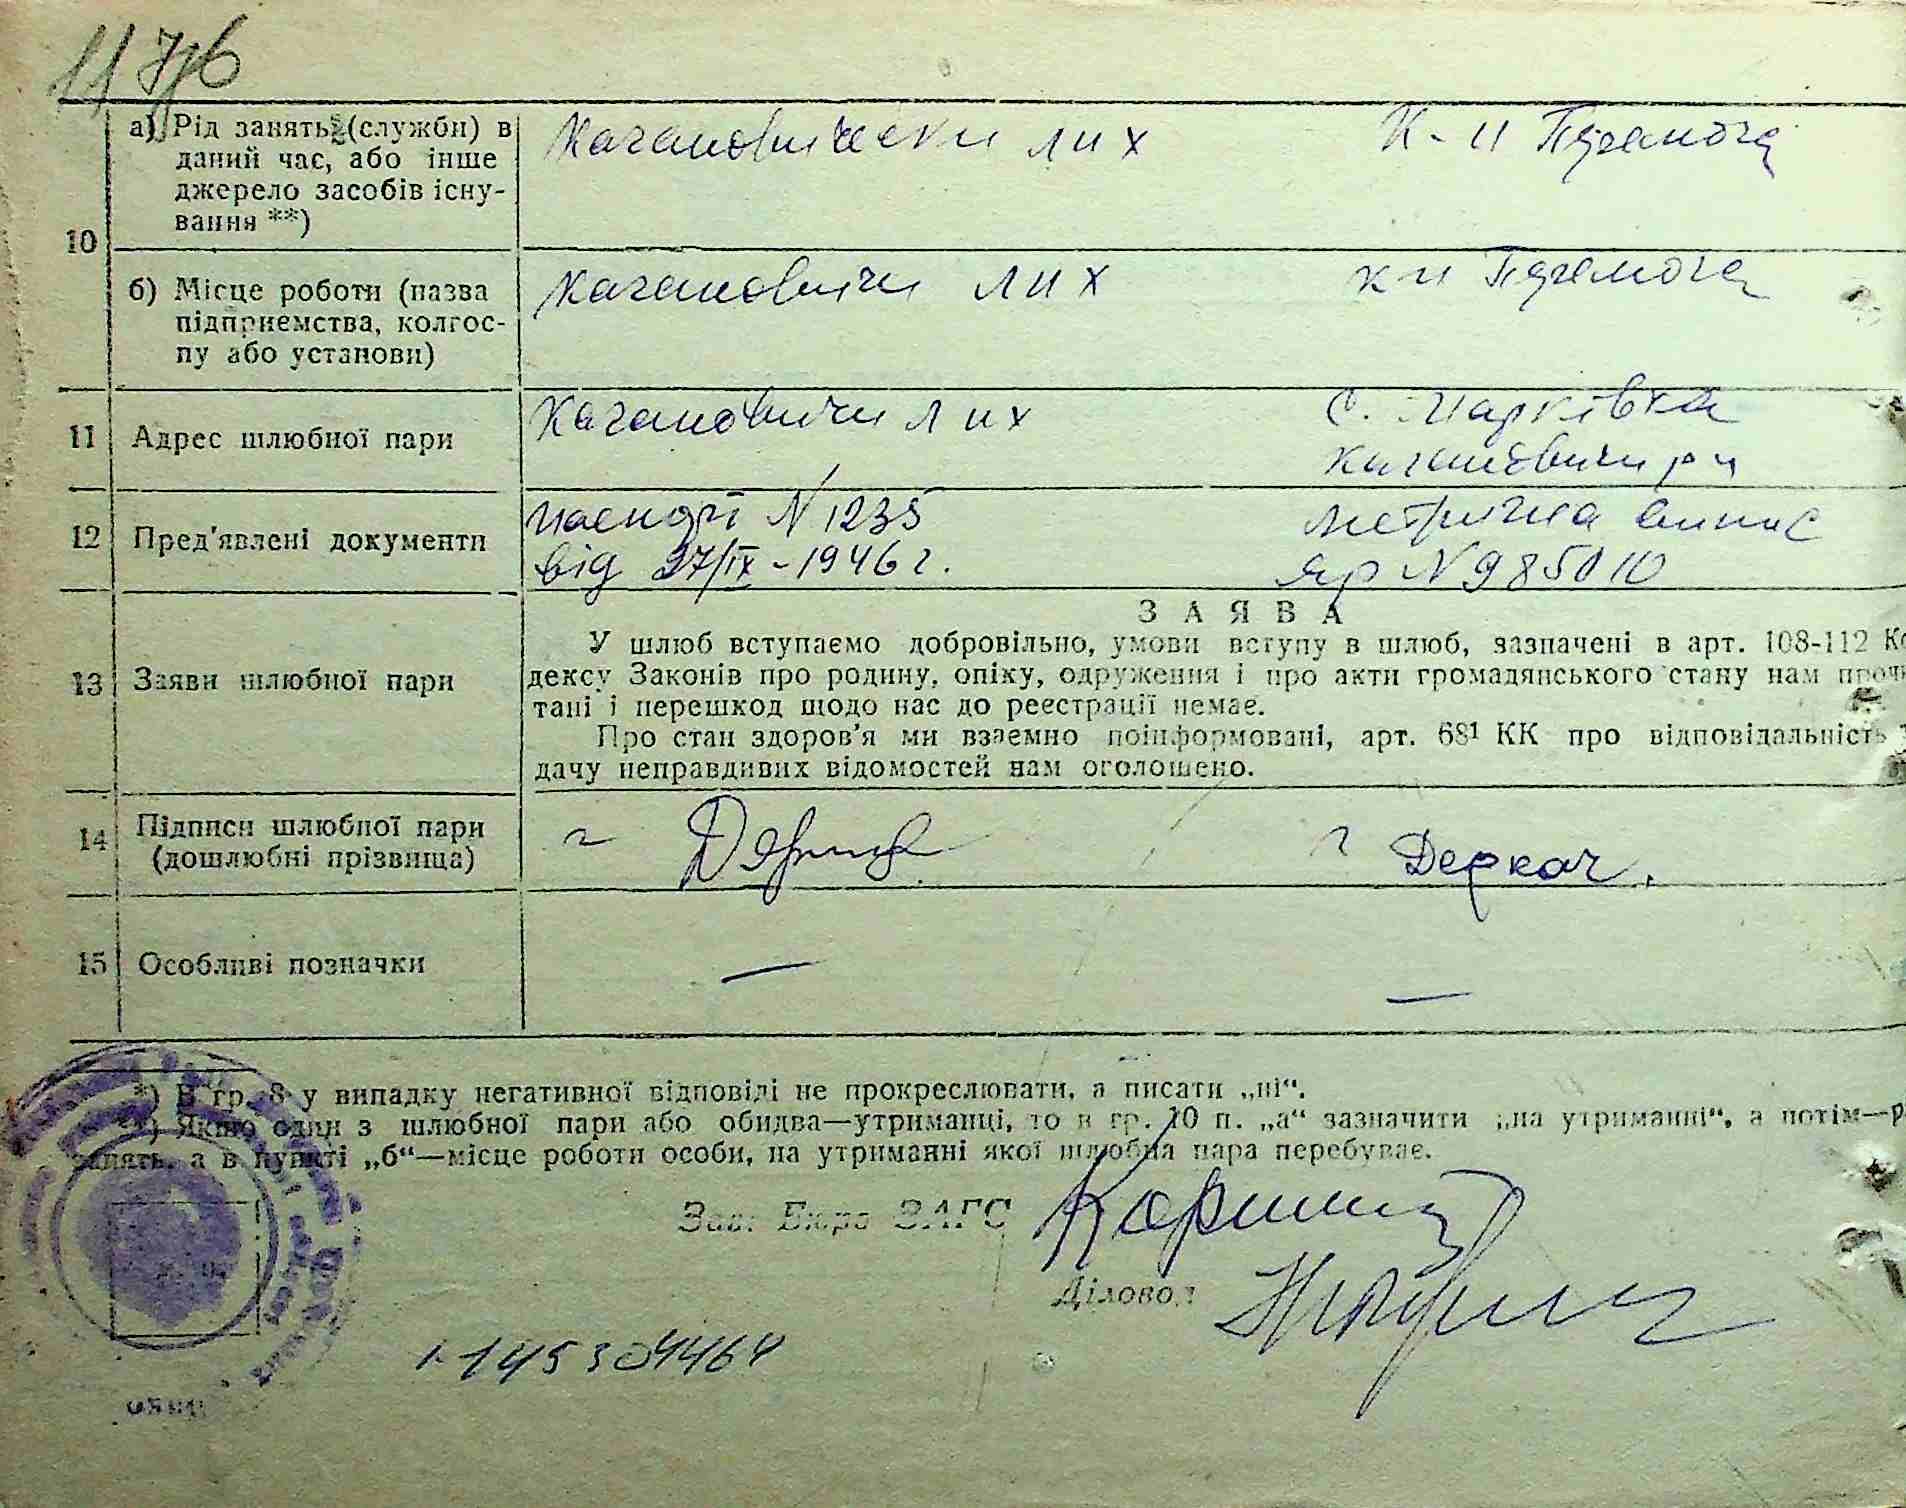 117/6
10
а) Рід занять (служби) в
даний час, або інше
джерело засобів існу-
вання **)
Качановически лих
К-п Перемога
б) Місце роботи (назва
підприємства, колгос-
пу або установи)
Качановичи лих
к-п Перемога
11
Адрес шлюбної пари
Качановичи лих
с. Марківка
Качановичи р н
12
Пред'явлені документи
паспорт N 1235
від 27/IX-1946 г.
метрична випис
ЯР N 985010
13
Заяви шлюбної пари
ЗАЯВА
У шлюб вступаємо добровільно, умови вступу в шлюб, зазначені в арт. 108-112 Ко
дексу Законів про родину, опіку, одруження і про акти громадянського стану нам проч
тані і перешкод щодо нас до реєстрації немає.
Про стан здоров'я ми взаємно поінформовані, арт. 68¹ КК про відповідальність
дачу неправдивих відомостей нам оголошено.
14
Підписи шлюбної пари
(дошлюбні прізвища)
Деркач.
15
Особливі позначки
—
—
*) В гр. 8 у випадку негативної відповіді не прокреслювати, а писати „ні“.
*) Якщо один з шлюбної пари або обидва—утриманці, то в гр. 10 п. „а“ зазначити „на утриманні“, а потім—р
занять, а в пункті „б“—місце роботи особи, на утриманні якої шлюбна пара перебуває.
Зав. Бюро ЗАГС
Діловод
1-145304464